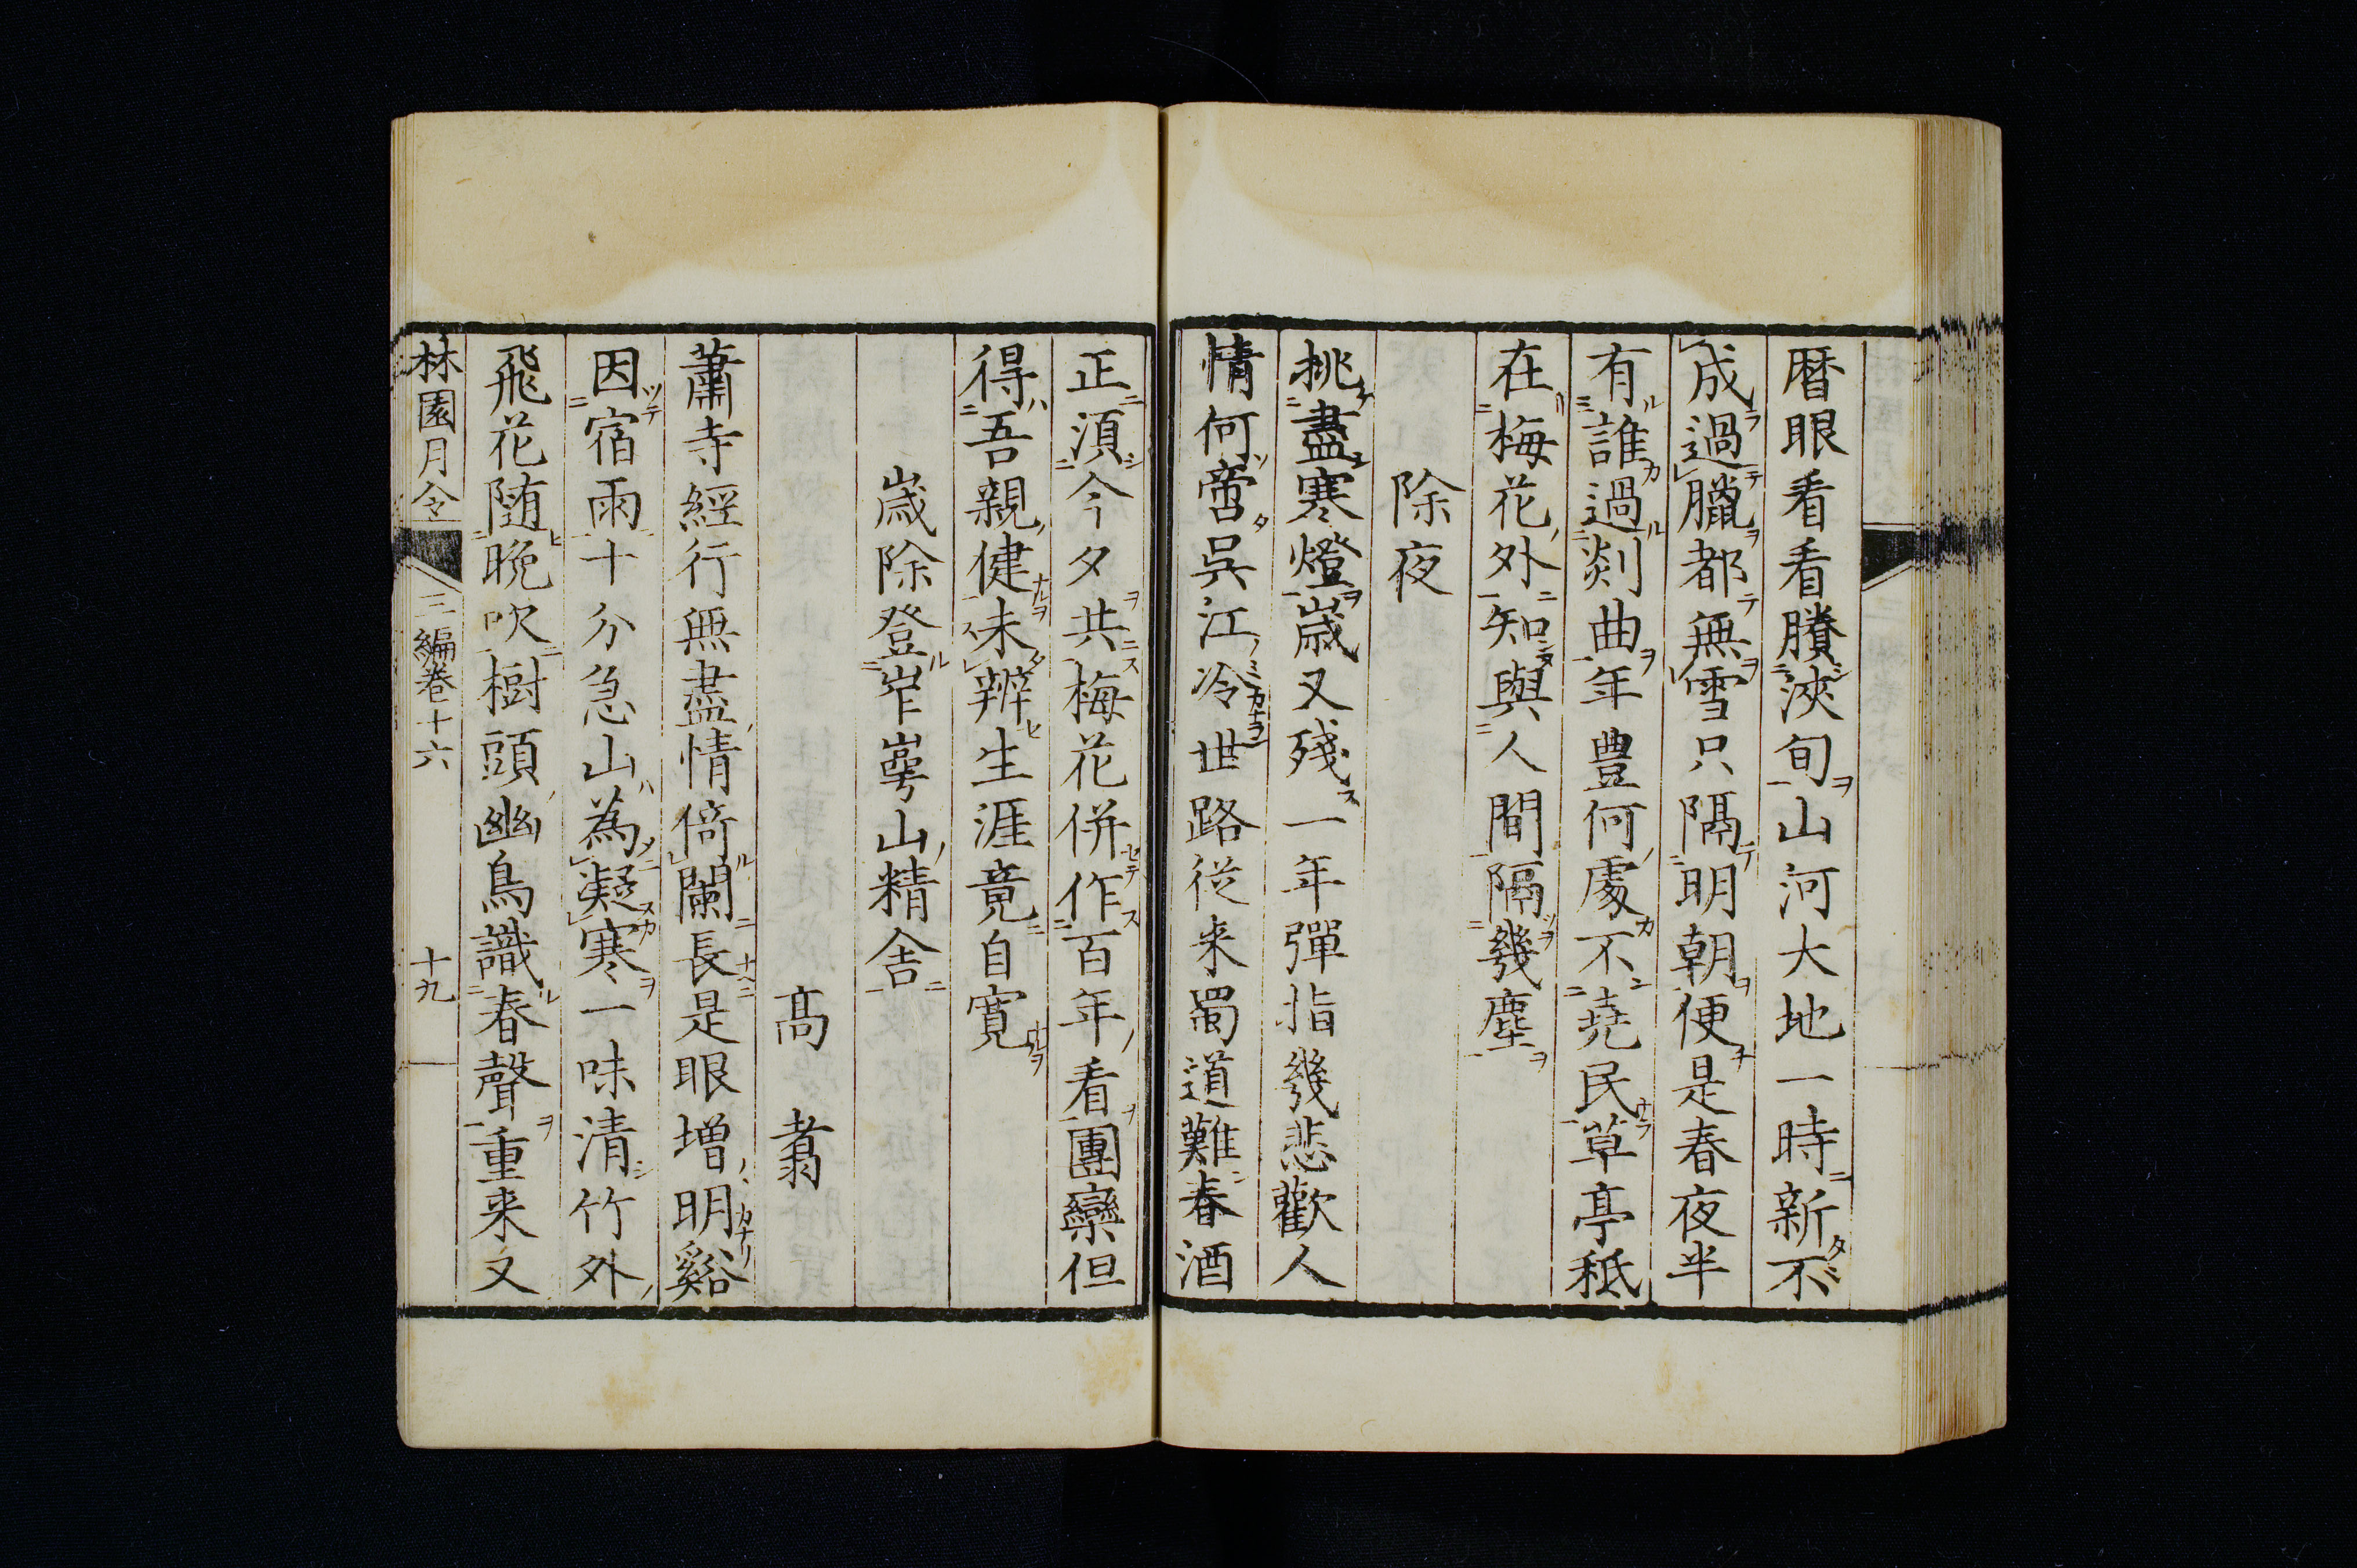 暦眼看看賸浹旬山河大地一時新不
成過臘都無雪只隔明朝便是春夜半
有誰過剡曲年豊何處不堯民草亭秪
在梅花外知與人間隔幾塵
除夜
挑盡寒燈歳又殘一年彈指幾悲歡人
情何啻呉江冷世路從来蜀道難春酒
正須今夕共梅花併作百年看團欒但
得吾親健未辨生涯竟自寛
歳除登岝崿山精舎
高翥
蕭寺經行無盡情倚闌長是眼增明谿
因宿雨十分急山為凝寒一味清竹外
飛花随晩吹樹頭幽鳥識春聲重来又
林園月令 三編卷十六 十九